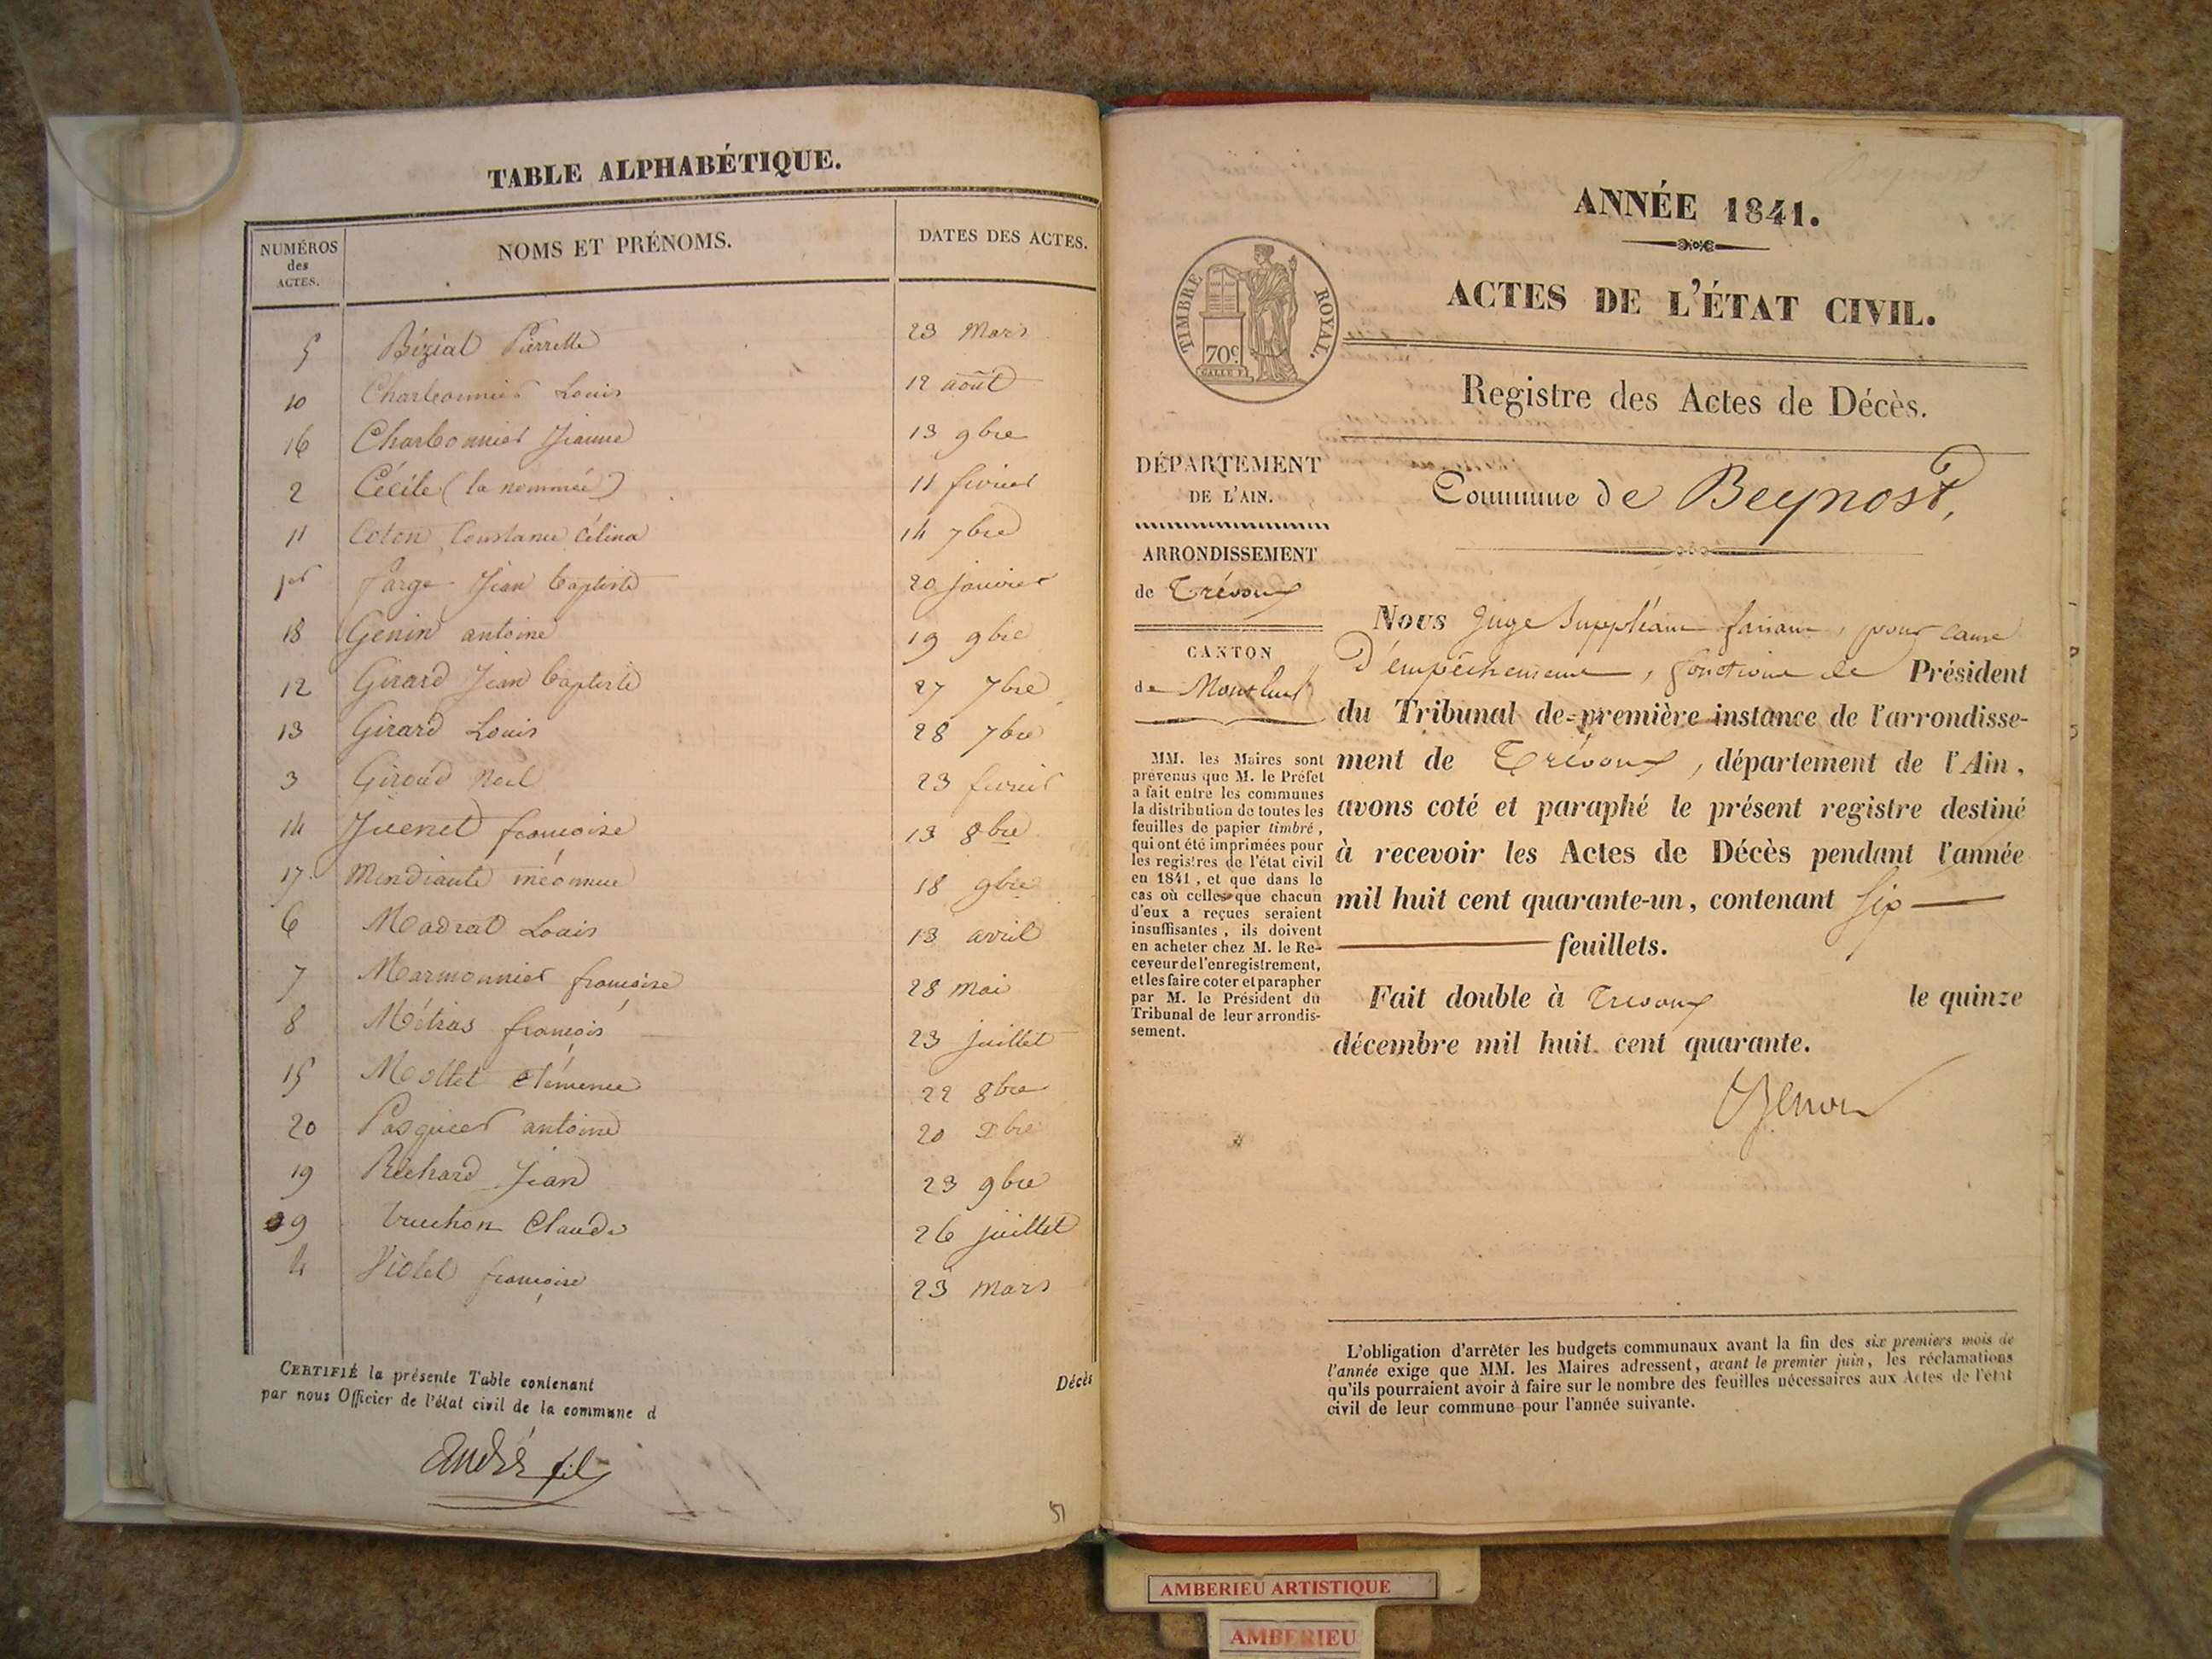 TABLE ALPHABÉTIQUE.
NUMÉROS
des
ACTES.
NOMS ET PRÉNOMS.
DATES DES ACTES.
5 Bézial Pierrette 23 Mars
10 Charbonnier Louis 12 août
16 Charbonnier Jeanne 13 9bre
2 Cécile (la nommée) 11 février
11 Coton Constance Célina 14 7bre
1er Farge Jean baptiste 20 janvier
18 Genin antoine 19 9bre
12 Girard Jean baptiste 27 7bre
13 Girard Louis 28 7bre
3 Giroud Noel 23 février
14 Juenet françoise 13 8bre
17 Mendiante inconnue 18 9bre
6 Madrat Louis 13 avril
7 Marmonnier françoise 28 Mai
8 Métras françois 23 juillet
15 Mollet Clémence 22 8bre
20 Pasquier antoine 20 Xbre
19 Richard Jean 23 9bre
9 Truchon Claude 26 juillet
4 Violet françoise 23 mars
CERTIFIÉ la présente Table contenant
Décès
par nous Officier de l'état civil de la commune d
André fils
51
ANNÉE 1841.
ACTES DE L'ÉTAT CIVIL.
TIMBRE ROYAL.
70c.
Registre des Actes de Décès.
DÉPARTEMENT
DE L'AIN.
ARRONDISSEMENT
de Trévoux
CANTON
de Montluel
MM. les Maires sont
prévenus que M. le Préfet
a fait entre les communes
la distribution de toutes les
feuilles de papier timbré,
qui ont été imprimées pour
les registres de l'état civil
en 1841, et que dans le
cas où celles que chacun
d'eux a reçues seraient
insuffisantes, ils doivent
en acheter chez M. le Re-
ceveur de l'enregistrement,
et les faire coter et parapher
par M. le Président du
Tribunal de leur arrondis-
sement.
Commune de Beynost,
Nous Juge Suppléant faisant, pour cause
d'empêchement, fonctions de Président
du Tribunal de première instance de l'arrondisse-
ment de Trévoux, département de l'Ain,
avons coté et paraphé le présent registre destiné
à recevoir les Actes de Décès pendant l'année
mil huit cent quarante-un, contenant six
feuillets.
Fait double à Trévoux le quinze
décembre mil huit cent quarante.
L'obligation d'arrêter les budgets communaux avant la fin des six premiers mois de
l'année exige que MM. les Maires adressent, avant le premier juin, les réclamations
qu'ils pourraient avoir à faire sur le nombre des feuilles nécessaires aux Actes de l'état
civil de leur commune pour l'année suivante.
AMBERIEU ARTISTIQUE
AMBERIEU